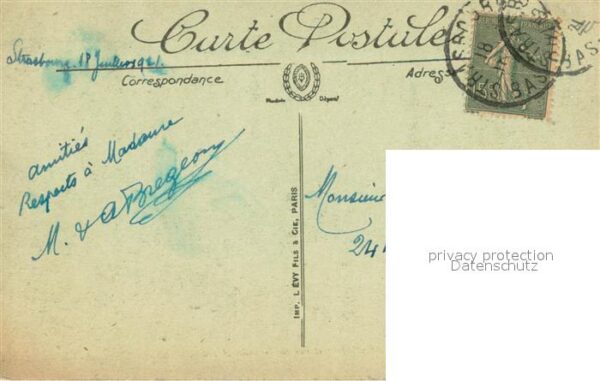 Carte Postale
Strasbourg. 18 Juillet 1921.
Correspondance
Adress
Modèle Déposé
amitiés
Respects à Madame
M. & A Bregeon
IMP. L. ÉVY FILS & CIE, PARIS
Monsieur
24
privacy protection
Datenschutz